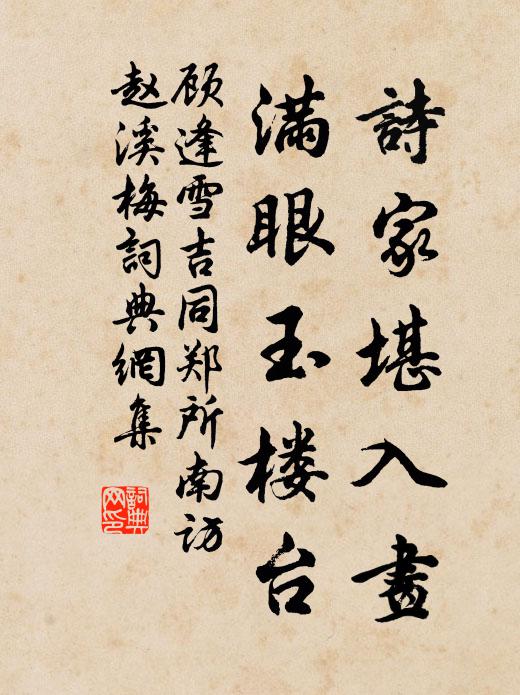 詩家堪入畫
滿眼玉楼台
顾逢雪吉同郑所南访
赵溪梅詞典網集
詞典
网印